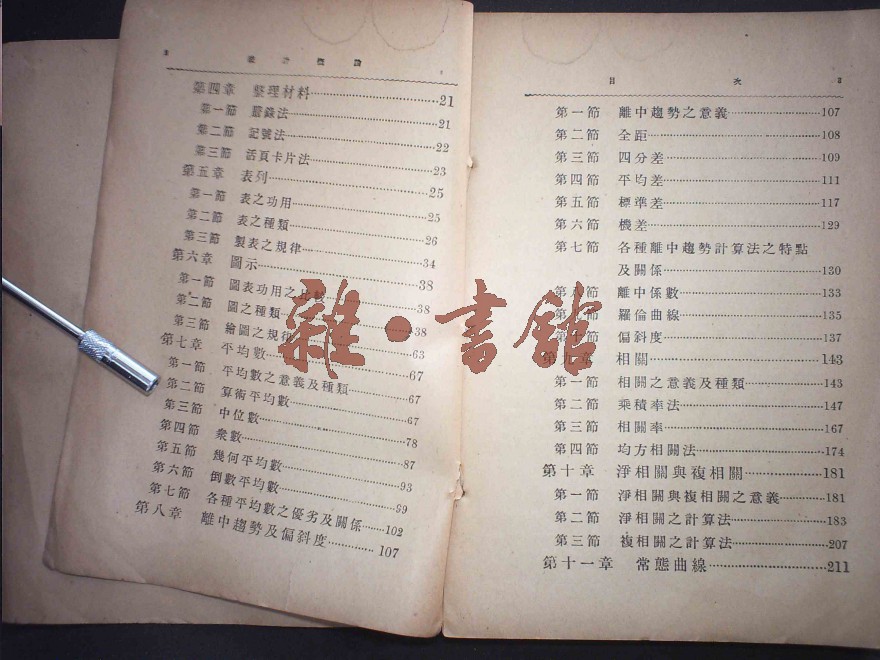 2 統計概論
第四章 整理材料 21
第一節 謄錄法 21
第二節 記號法 22
第三節 活頁卡片法 23
第五章 表列 25
第一節 表之功用 25
第二節 表之種類 26
第三節 製表之規律 34
第六章 圖示 38
第一節 圖表功用之比較 38
第二節 圖之種類 38
第三節 繪圖之規律 63
第七章 平均數 67
第一節 平均數之意義及種類 67
第二節 算術平均數 67
第三節 中位數 78
第四節 衆數 87
第五節 幾何平均數 93
第六節 倒數平均數 99
第七節 各種平均數之優劣及關係 102
第八章 離中趨勢及偏斜度 107
目次 3
第一節 離中趨勢之意義 107
第二節 全距 108
第三節 四分差 109
第四節 平均差 111
第五節 標準差 117
第六節 機差 129
第七節 各種離中趨勢計算法之特點
及關係 130
第八節 離中係數 133
第九節 羅倫曲線 135
第十節 偏斜度 137
第九章 相關 143
第一節 相關之意義及種類 143
第二節 乘積率法 147
第三節 相關率 167
第四節 均方相關法 174
第十章 淨相關與複相關 181
第一節 淨相關與複相關之意義 181
第二節 淨相關之計算法 183
第三節 複相關之計算法 207
第十一章 常態曲線 211
雜·書館